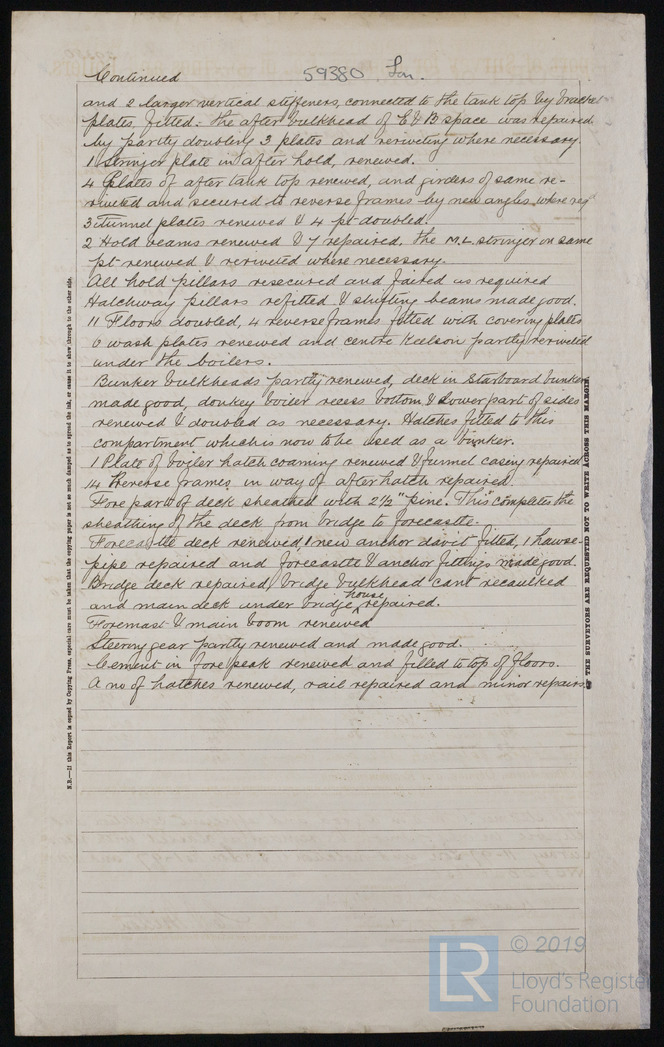 Continued 59380 Lon.
and 2 larger vertical stiffeners, connected to the tank top by bracket
plates, fitted. the after bulkhead of E & B space was repaired
by partly doubling 3 plates and reriveting where necessary.
1 Stringer plate in after hold, renewed.
4 Plates of after tank top renewed, and girders of same re-
riveted and secured to reverse frames by new angles, where req
3 Tunnel plates renewed & 4 pt doubled.
2 Hold beams renewed & 7 repaired. the M.L. stringer on same
pt renewed & reriveted where necessary.
All hold pillars resecured and faired as required
Hatchway pillars refitted & shifting beams made good.
11 Floors doubled, 4 reverse frames fitted with covering plates
6 wash plates renewed and centre keelson partly reriveted
under the boilers.
Bunker bulkheads partly renewed, deck in Starboard bunker
made good, donkey boiler recess bottom & lower part of sides
renewed & doubled as necessary. Hatches fitted to this
compartment which is now to be used as a bunker.
1 Plate of boiler hatch coaming renewed & funnel casing repaired
14 Reverse frames in way of after hatch repaired.
Fore part of deck sheathed with 2½" pine. This completes the
sheathing of the deck from bridge to forecastle.
Forecastle deck renewed, 1 new anchor davit fitted, 1 hawse-
pipe repaired and forecastle & anchor fittings made good.
Bridge deck repaired, bridge bulkhead cant recaulked
and main deck under bridge house repaired.
Foremast & main boom renewed
Steering gear partly renewed and made good.
Cement in fore peak renewed and filled to top of floors.
A no of hatches renewed, rail repaired and minor repairs.
N.B.—If this Report is copied by Copying Press, especial care must be taken that the copying paper is not so much damped as to spread the ink, or cause it to show through to the other side.
THE SURVEYORS ARE REQUESTED NOT TO WRITE ACROSS THIS MARGIN.
LR
© 2019
Lloyd's Register
Foundation